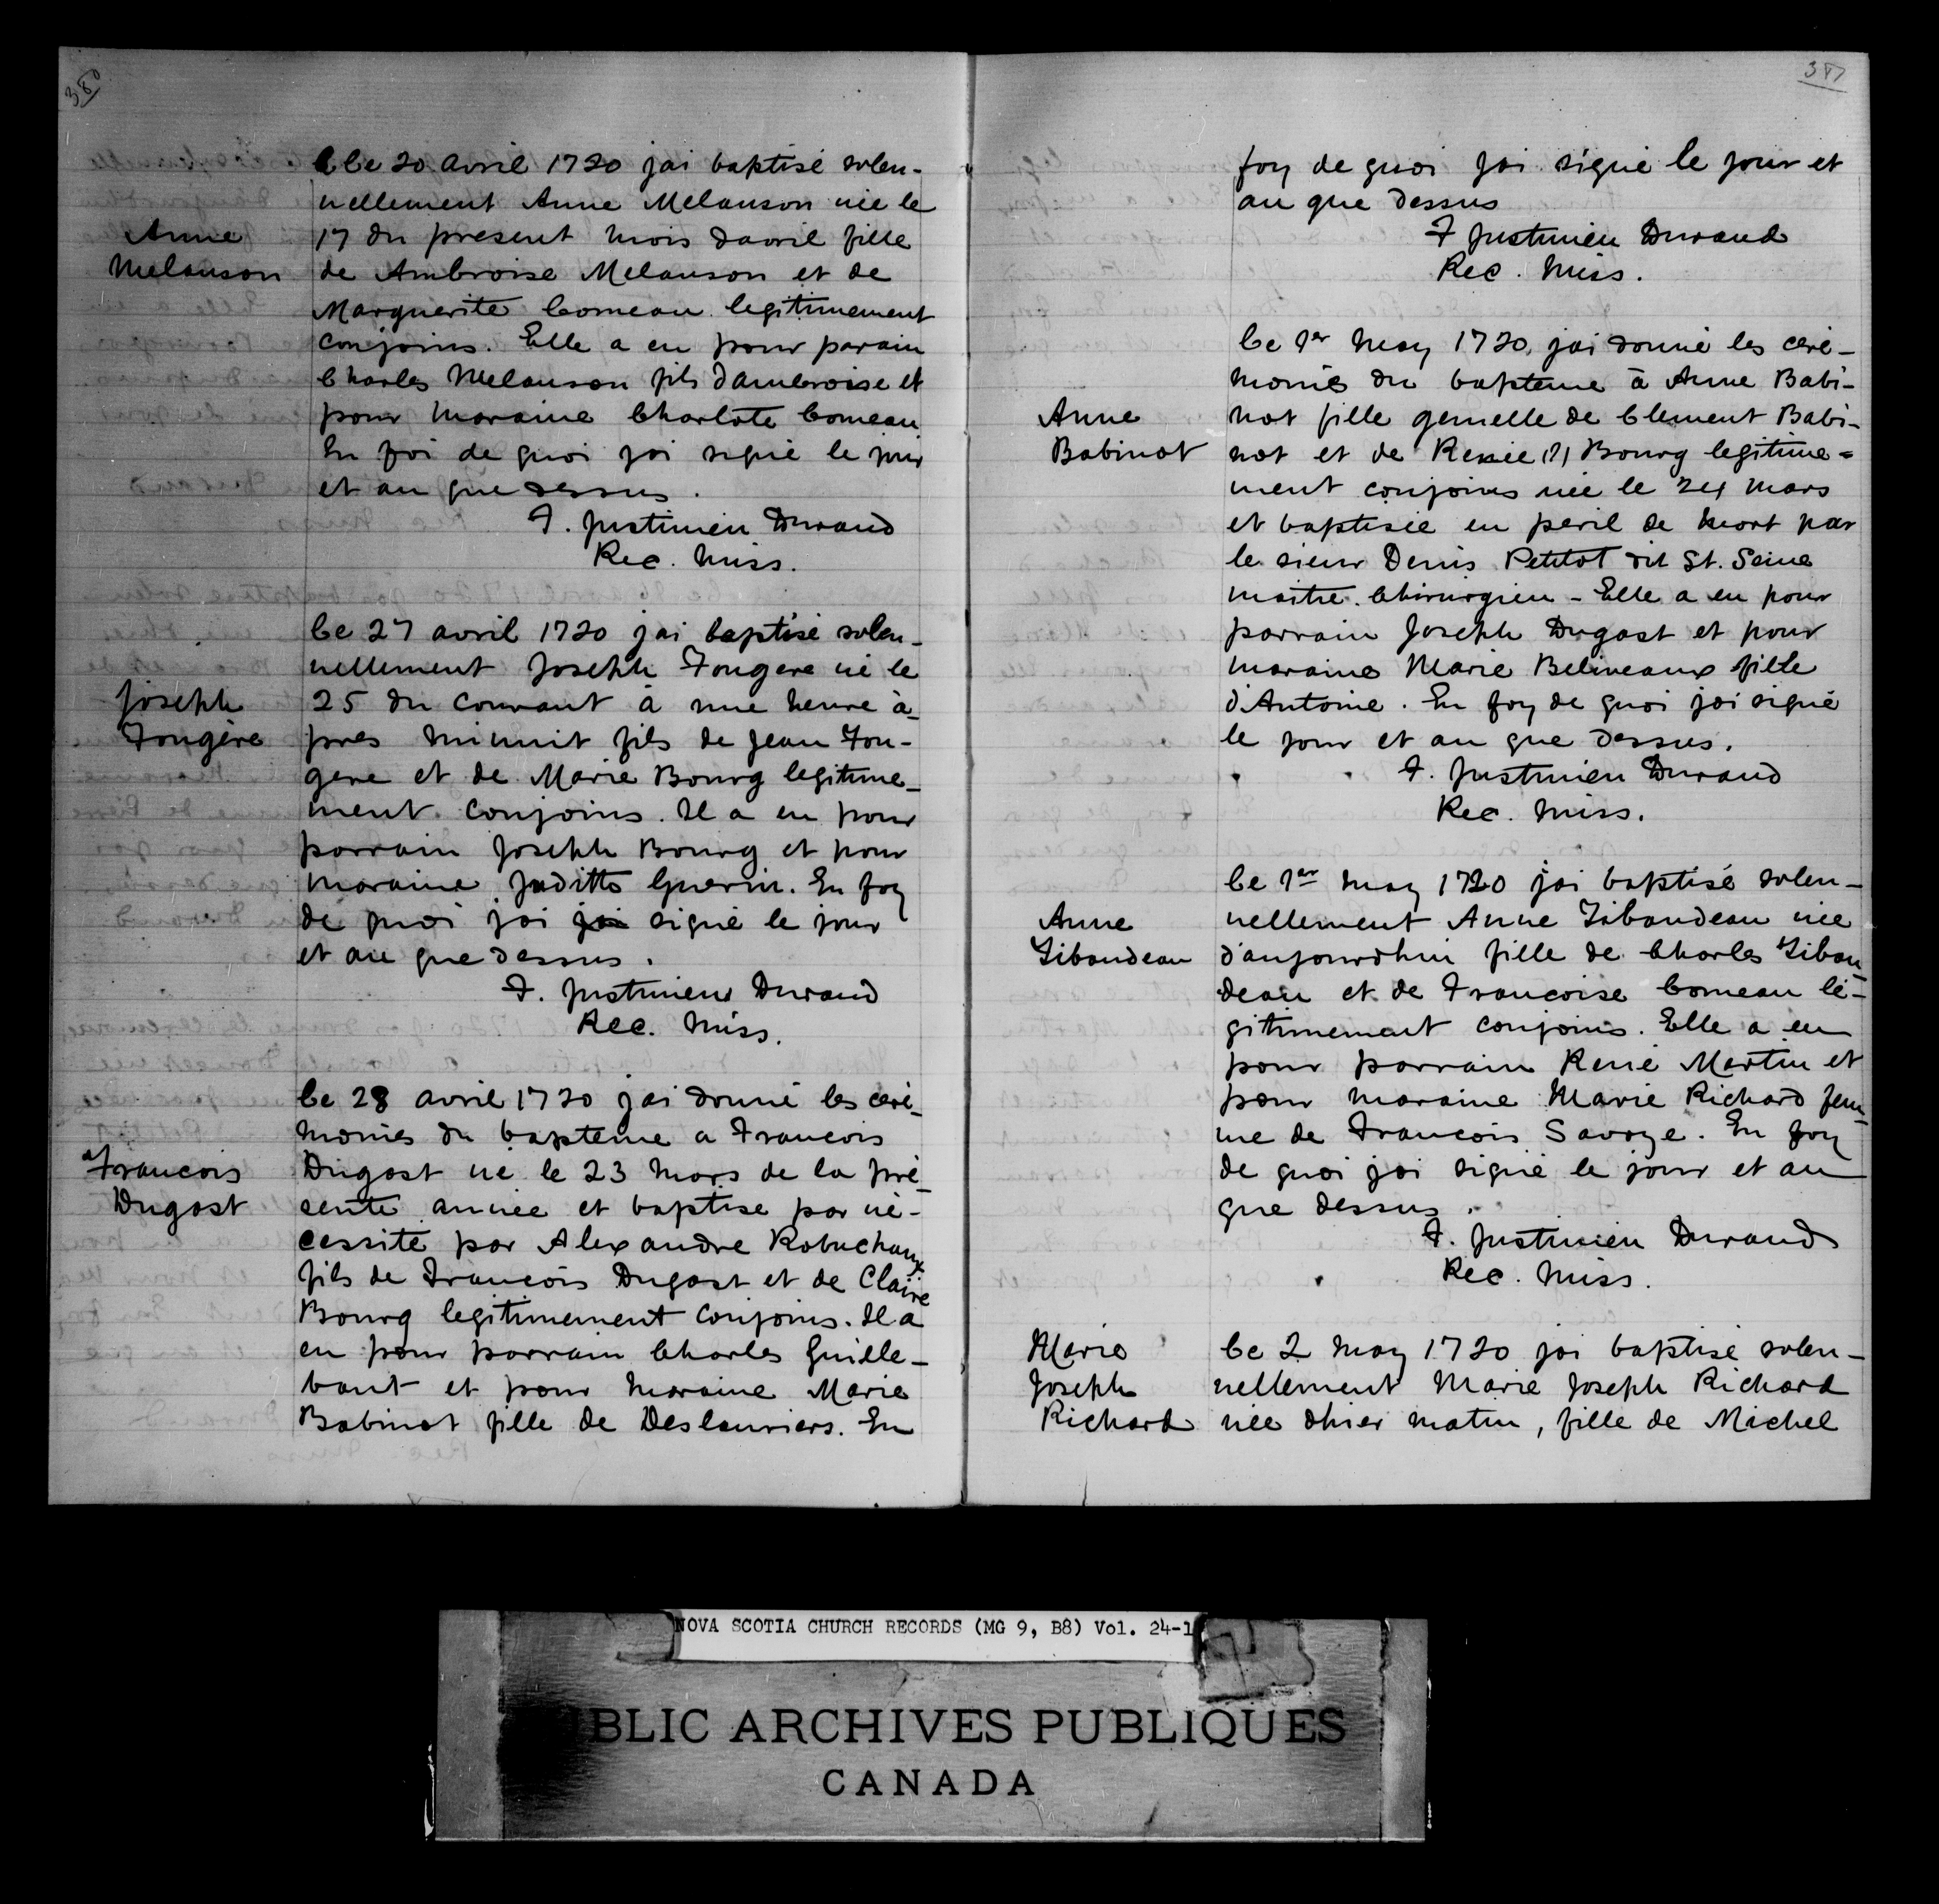 380
Le 20 avril 1720 jai baptisé solen-
nellement Anne Melanson née le
17 du present mois davril fille
de Ambroise Melanson et de
Marguerite Comeau legitimement
conjoins. Elle a eu pour parain
Charles Melanson fils dambroise et
pour maraine Charlote Comeau
En foi de quoi jai signé le jour
et an que dessus.
F. Justinien Durand
Rec. Miss.
Anne
Melanson
Le 27 avril 1720 jai baptisé solen-
nellement Joseph Fougere né le
25 du courant à une heure à-
pres minuit fils de Jean Fou-
gere et de Marie Bourg legitime-
ment conjoins. Il a eu pour
parrain Joseph Bourg et pour
maraine Juditte Guerin. En foy
de quoi jai jai signé le jour
et an que dessus.
F. Justinien Durand
Rec. Miss.
Joseph
Fougère
Le 28 avril 1720 jai donné les céré-
monies du bapteme a Francois
Dugast né le 23 mars de la pré-
sente année et baptise par né-
cessité par Alexandre Robuchaux
fils de Francois Dugast et de Claire
Bourg legitimement conjoins. Il a
eu pour parrain Charles Guille-
baut et pour maraine Marie
Babinot fille de Deslauriers. En
Francois
Dugast
381
foy de quoi jai signé le jour et
an que dessus
F Justinien Durand
Rec. Miss.
Le 1er May 1720, jai donné les céré-
monies du bapteme à Anne Babi-
not fille gemelle de Clement Babi-
not et de Renée (?) Bourg legitime-
ment conjoins née le 24 mars
et baptisée en peril de mort par
le sieur Denis Petitot dit St. Seine
maitre Chirurgien - Elle a eu pour
parrain Joseph Dugast et pour
maraine Marie Beliveaux fille
d'Antoine. En foy de quoi jai signé
le jour et an que dessus.
F. Justinien Durand
Rec. Miss.
Anne
Babinot
Le 1er may 1720 jai baptisé solen-
nellement Anne Tibaudeau née
d'aujourdhui fille de Charles Tibau-
deau et de Francoise Comeau lé-
gitimement conjoins. Elle a eu
pour parrain René Martin et
pour maraine Marie Richard fem-
me de Francois Savoye. En foy
de quoi jai signé le jour et an
que dessus.
F. Justinien Durand
Rec. Miss.
Anne
Tibaudeau
Le 2 may 1720 jai baptisé solen-
nellement Marie Joseph Richard
née dhier matin, fille de Michel
Marie
Joseph
Richard
NOVA SCOTIA CHURCH RECORDS (MG 9, B8) Vol. 24-1
BLIC ARCHIVES PUBLIQUES
CANADA